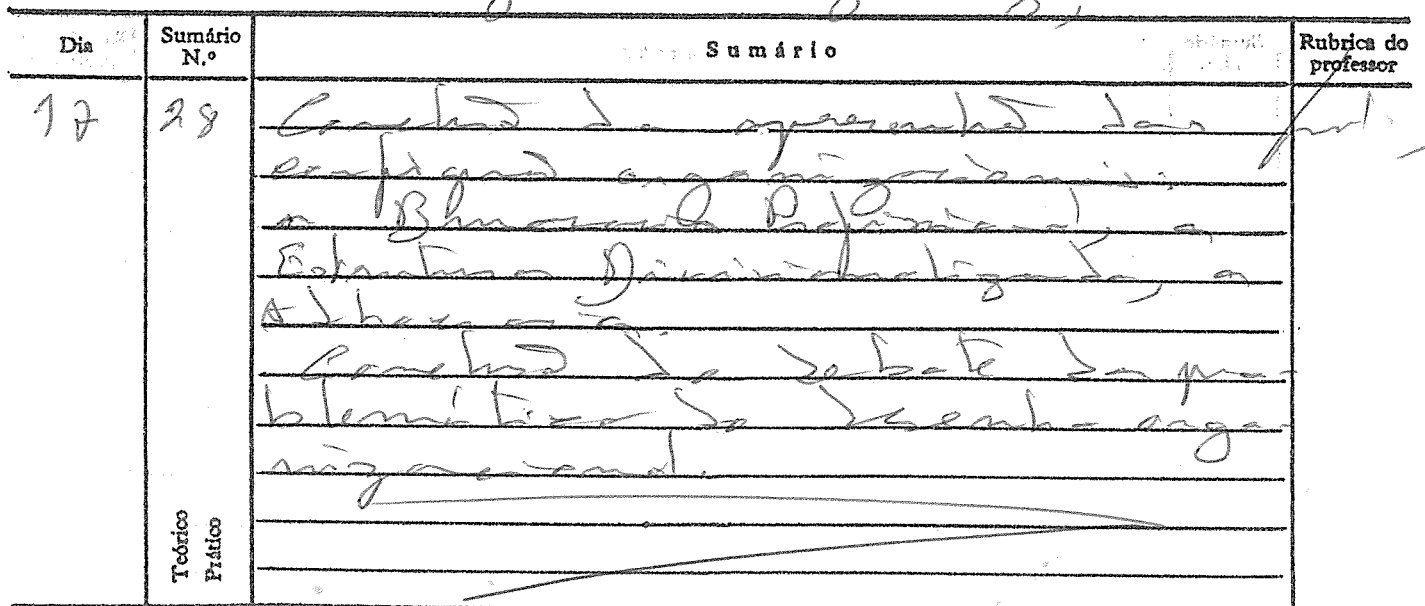 Dia
Sumário N.º
Sumário
Rubrica do professor
17
28
Conclusão da apresentação das
configurações organizacionais:
a Burocracia Profissional, a
Estrutura Divisionalizada, a
Adhocracia.
Conclusão do debate da pro-
blemática do desenho orga-
nizacional.
Teórico
Prático